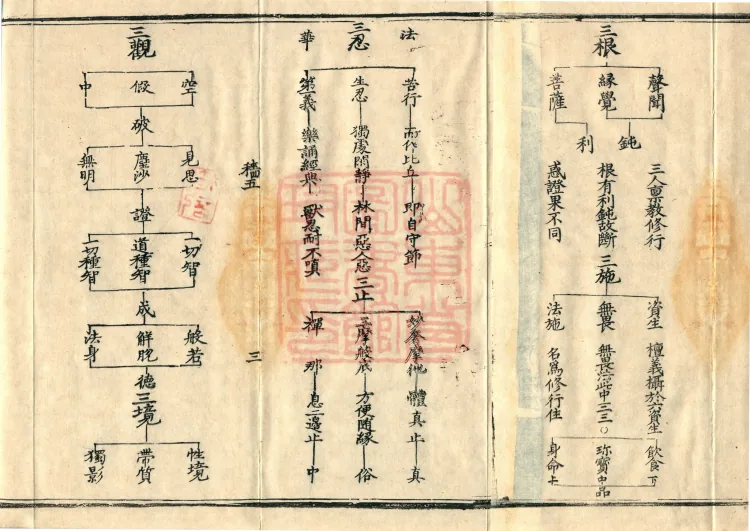 三根
聲聞
緣覺
菩薩
鈍
利
三人稟教修行
根有利鈍故斷
惑證果不同
三施
資生
無畏
法施
檀義攝於六資生
無畏 此中一二三〇
名為修行住
飲食下
珍寶中品
身命上
法
三忍
華
苦行 而作比丘 即自守節
生忍 獨處閒靜 林間惡人惡
第義 樂誦經典 獸惡耐不嗔
三止
奢摩他 體真止 真
三摩般底 方便隨緣 俗
禪那 息二邊止 中
穡五
三
三觀
空
假
中
破
見思
塵沙
無明
證
一切智
道種智
一切種智
成
般若
解脫
法身
德
三境
性境
帶質
獨影